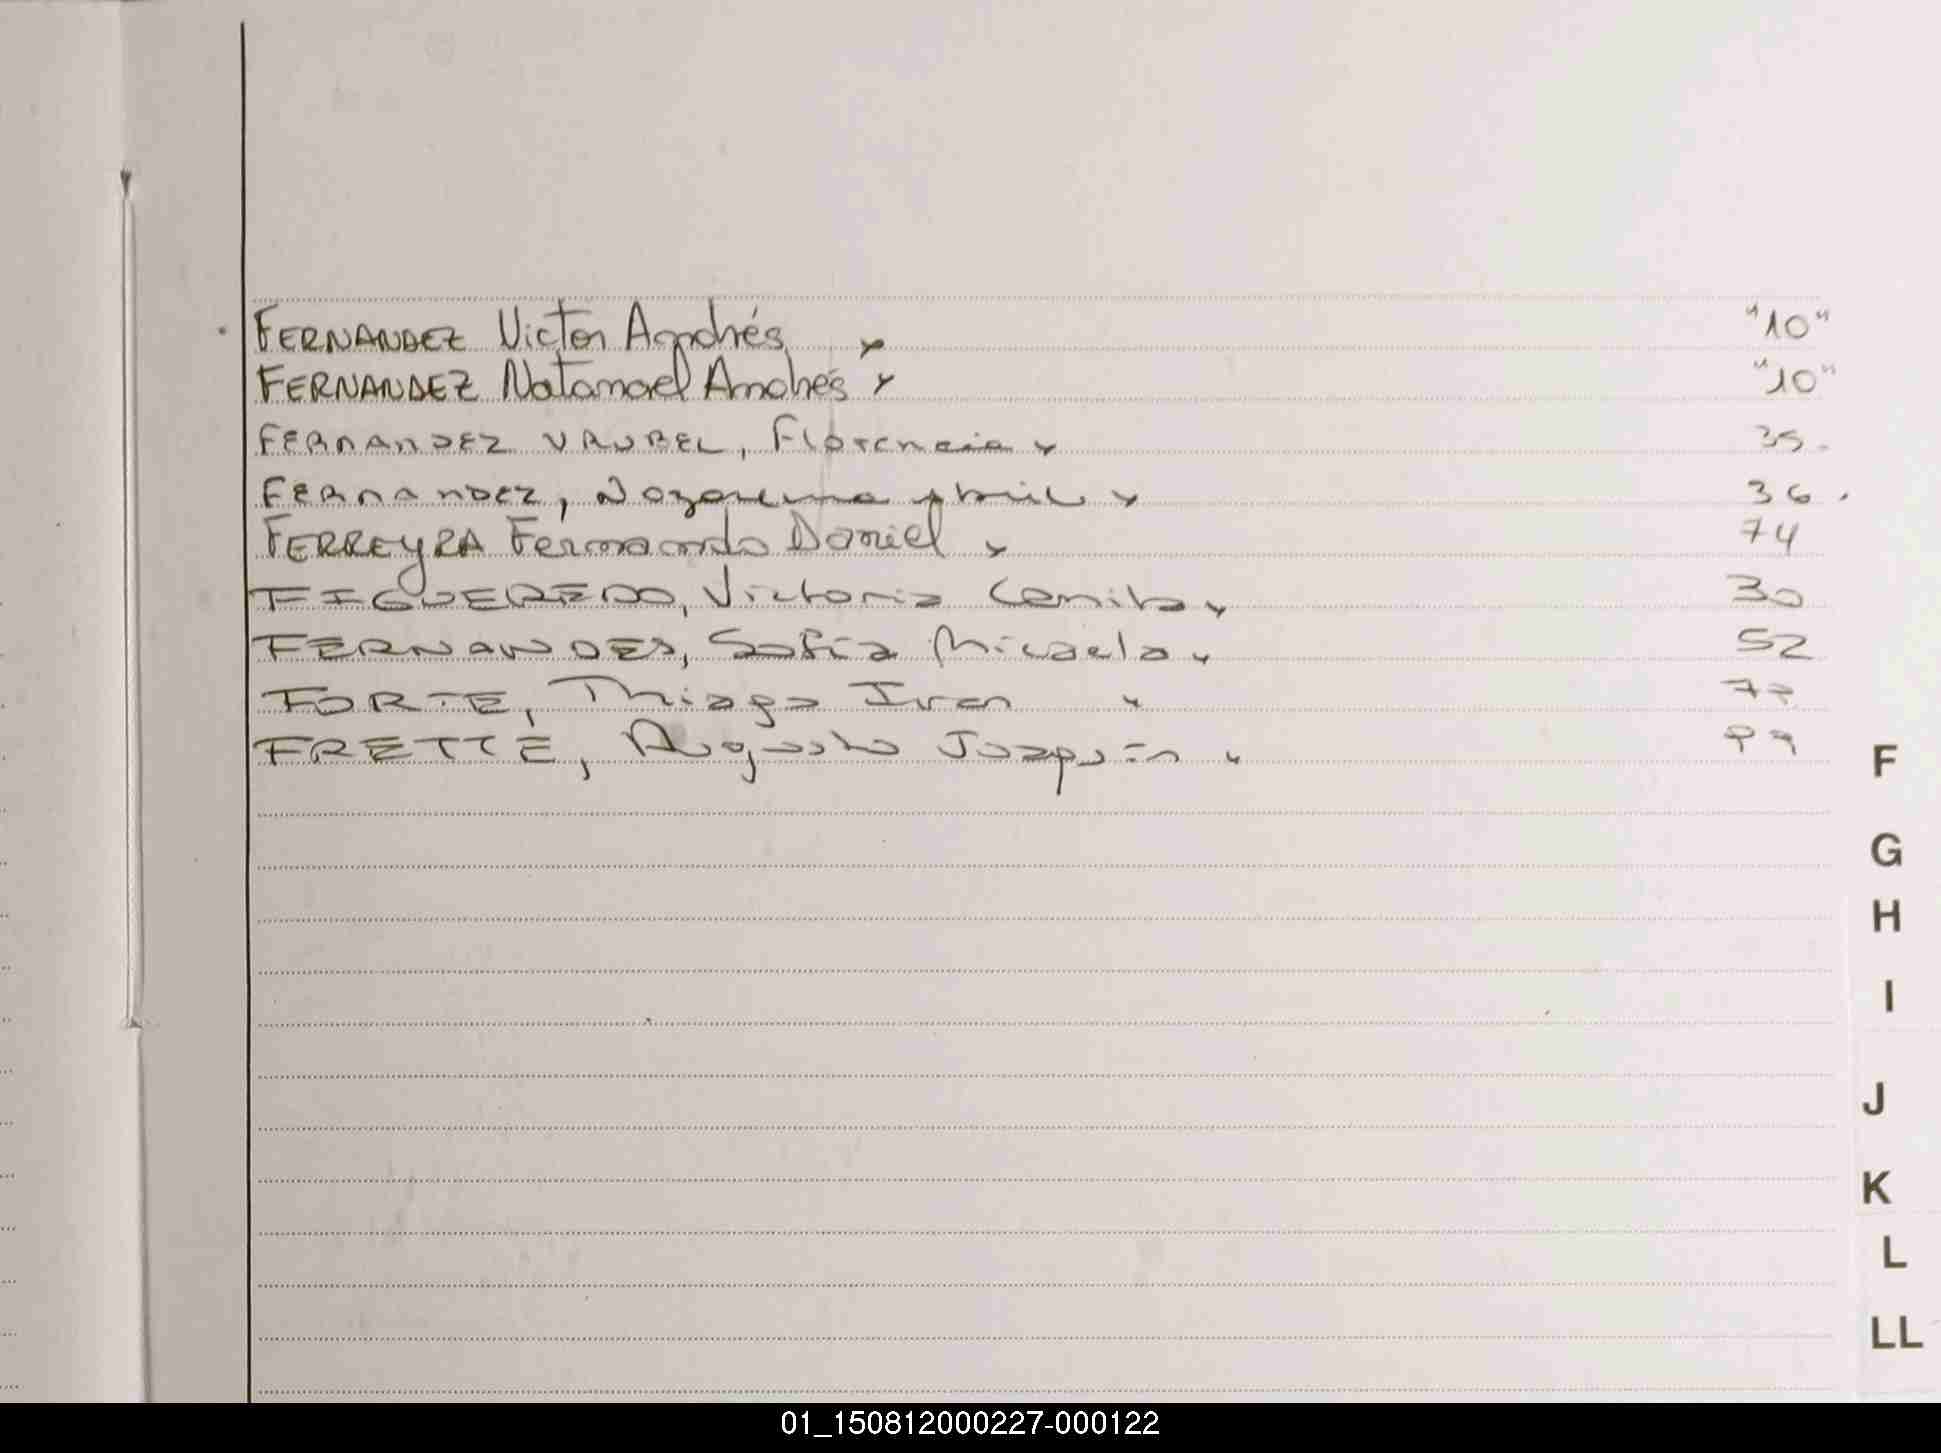 FERNANDEZ Victor Andrés "10"
FERNANDEZ Natanael Andrés "10"
FERNANDEZ URUBEL, Florencia 35
FERNANDEZ, Nazarena Abril 36
FERREYRA Fernando Daniel 74
FIGUEREDO, Victoria Camila 30
FERNANDES, Sofía Micaela 52
FORTE, Thiago Ivan
FRETTE, Augusto Joaquín
F
G
H
I
J
K
L
LL
01_150812000227-000122